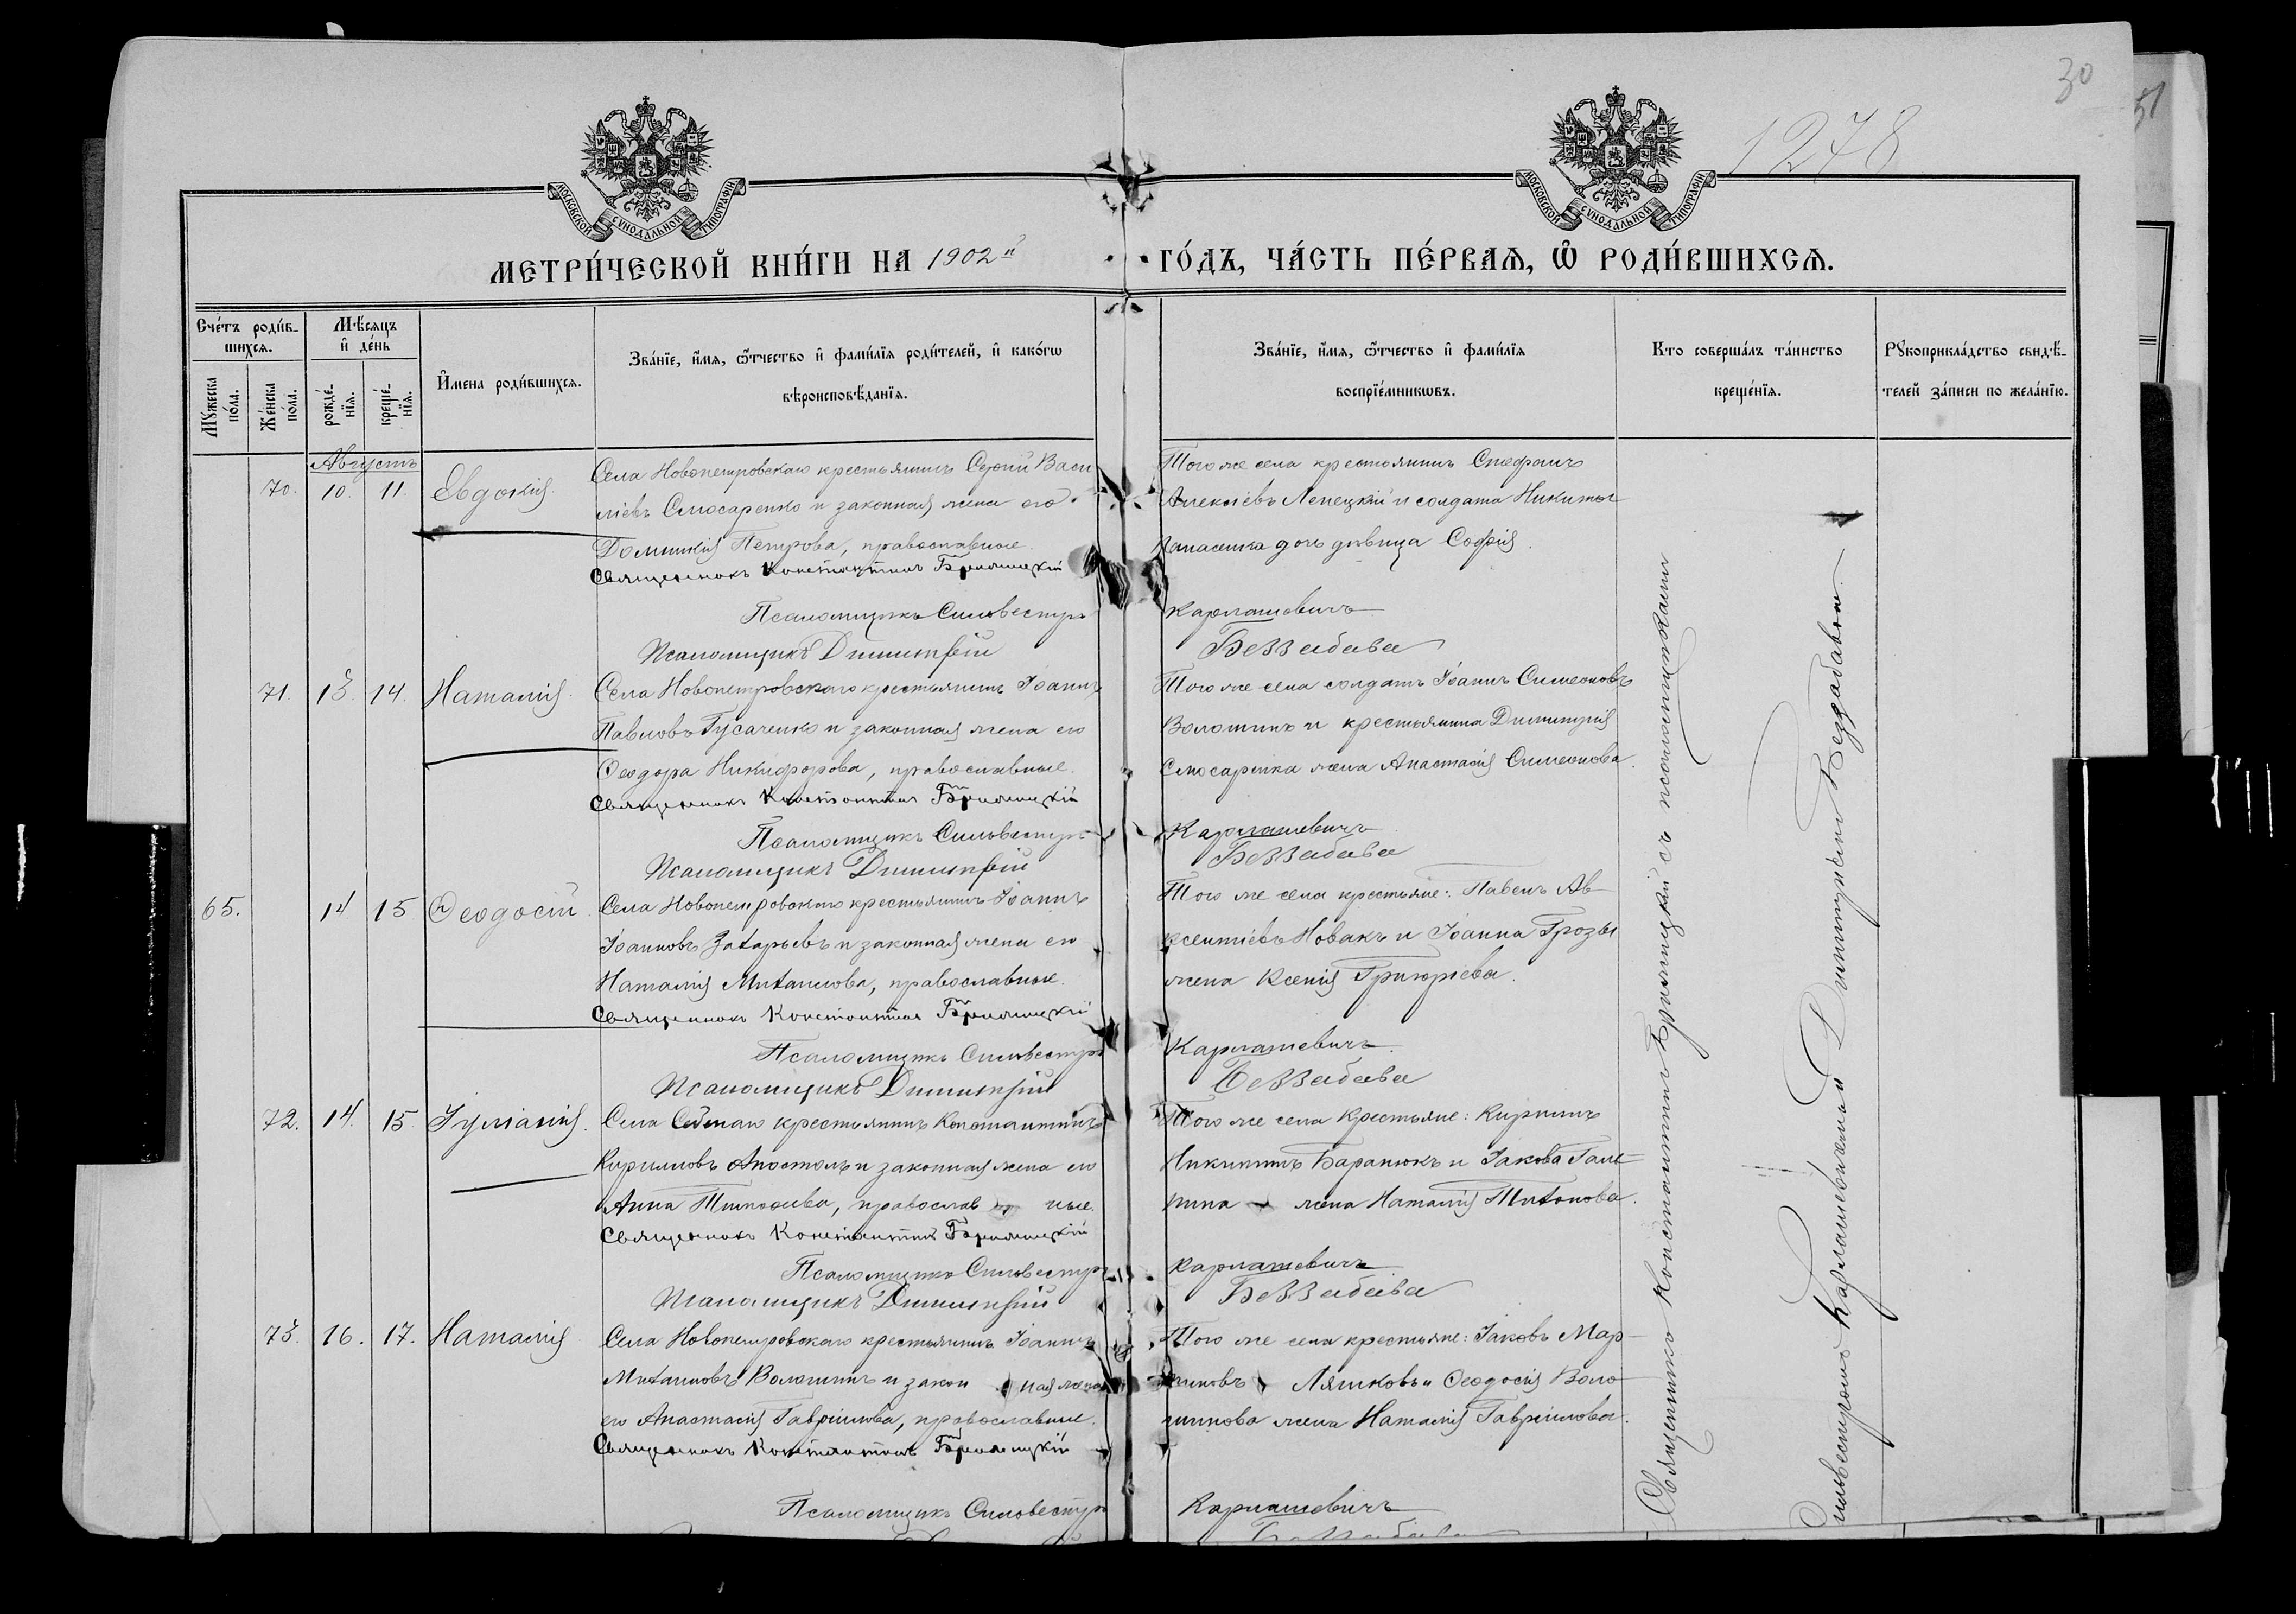 30
51
1278
МОСКОВСКОЙ СѴНОДАЛЬНОЙ ТИПОГРАФІИ
МОСКОВСКОЙ СѴНОДАЛЬНОЙ ТИПОГРАФІИ
МЕТРИ́ЧЕСКОЙ КНИ́ГИ НА 1902й ГО́ДЪ, ЧА́СТЬ ПЕ́РВАѦ, Ѽ РОДИ́ВШИХСѦ.
Сче́тъ роди́вшихсѧ.
Мꙋ́жеска по́ла.
Же́нска по́ла.
Мѣ́сѧцъ и҆ де́нь
рожде́нїѧ.
креще́нїѧ.
И҆мена роди́вшихсѧ.
Зва́нїе, и҆́мѧ, ѻ҆́тчество и҆ фами́лїѧ роди́телей, и҆ како́гѡ
вѣроисповѣ́данїѧ.
Зва́нїе, и҆́мѧ, ѻ҆́тчество и҆ фами́лїѧ
воспрїе́мникѡвъ.
Кто соверша́лъ та́инство
креще́нїѧ.
Рꙋкоприкла́дство свидѣ́телей за́писи по жела́нїю.
Августъ
70. 10. 11. Евдокія.
Села Новопетровскаго крестьянинъ Сергій Васи
ліевъ Слюсаренко и законная жена его
Домникія Петрова, православные.
Священникъ Константинъ
Псаломщикъ Сильвестръ
Псаломщикъ Димитрій
Того же села крестьянинъ Стефанъ
Алексіевъ Лепецкій и солдата Никиты
дочь дѣвица Софія.
Карлашевичъ
Беззабава
71. 13. 14. Наталія.
Села Новопетровскаго крестьянинъ Іоаннъ
Павловъ Гусаченко и законная жена его
Ѳеодора Никифорова, православные.
Священникъ Константинъ
Псаломщикъ Сильвестръ
Псаломщикъ Димитрій
Того же села солдатъ Іоаннъ Симеоновъ
Волошинъ и крестьянина Димитрія
Слюсаренка жена Анастасія Симеонова.
Карлашевичъ
Беззабава
65. 14 15 Ѳеодосій.
Села Новопетровскаго крестьянинъ Іоаннъ
Іоанновъ Захарьевъ и законная жена его
Наталія Михаилова, православные.
Священникъ Константинъ
Псаломщикъ Сильвестръ
Псаломщикъ Димитрій
Того же села крестьяне: Павелъ Ав
ксентіевъ Новакъ и Іоанна Грозы
жена Ксенія Григоріева.
Карлашевичъ
Беззабава
72. 14. 15. Іуліанія.
Села крестьянинъ Константинъ
Кирилловъ Апостолъ и законная жена его
Анна Тимофеева, православ ные.
Священникъ Константинъ
Псаломщикъ Сильвестръ
Псаломщикъ Димитрій
Того же села Крестьяне: Кириллъ
Никитинъ Баранюкъ и Іакова
жена Наталія Тихонова.
Карлашевичъ
Беззабава
73. 16. 17. Наталія
Села Новопетровскаго крестьянинъ Іоаннъ
Михаиловъ Волошинъ и закон ная жена
его Анастасія Гавріилова, православные.
Священникъ Константинъ
Псаломщикъ Сильвестръ
Того же села крестьяне: Іаковъ Мар
тиновъ Ляшковъ и Ѳеодосія Воло
шинова жена Наталія Гавріилова.
Карлашевичъ
Священникъ Константинъ съ псаломщиками
Сильвестромъ Карлашевичемъ и Димитріемъ Беззабавою